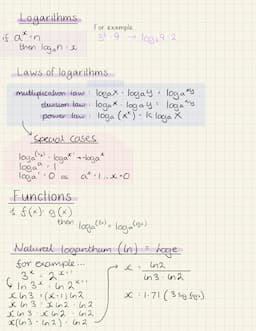 Logarithms
if aˣ = n
then logₐn = x
For example
3² = 9 → log₃9 = 2
Laws of logarithms
multiplication law: logₐx + logₐy = logₐxy
division law: logₐx - logₐy = logₐx/y
power law: logₐ(xᵏ) = k logₐx
Special cases
logₐ(1/x) = logₐx⁻¹ = -logₐx
logₐa = 1
logₐ1 = 0
aˣ = 1 ... x = 0
Functions
if f(x) = g(x)
then logₐf(x) = logₐg(x)
Natural logarithm (ln) = logₑ
for example...
3ˣ = 2ˣ⁺¹
ln 3ˣ = ln 2ˣ⁺¹
x ln 3 = (x+1) ln 2
x ln 3 = x ln 2 + ln 2
x ln 3 - x ln 2 = ln 2
x(ln 3 - ln 2) = ln 2
x = ln 2 / ln 3 - ln 2
x = 1.71 (3 sig figs)